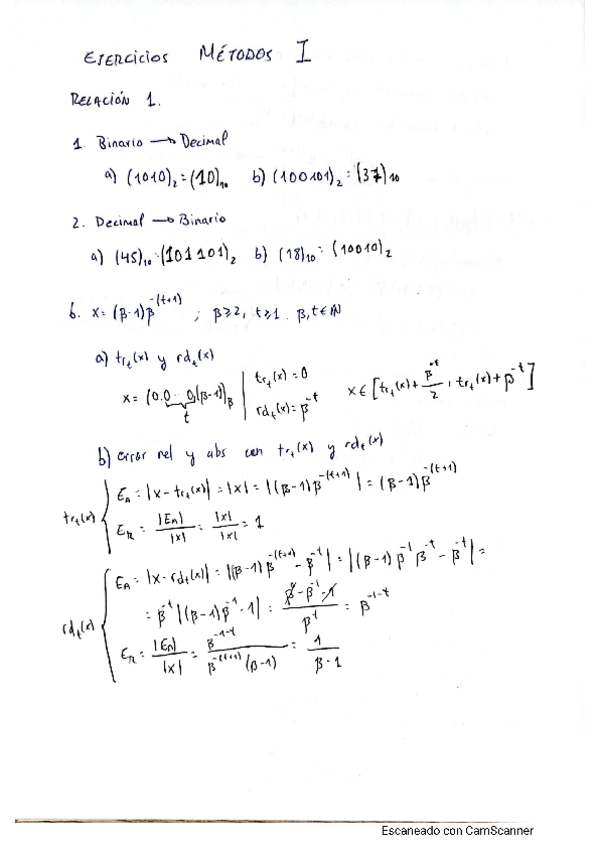 EJERCICIOS MÉTODOS I
RELACIÓN 1.
1. Binario → Decimal
a) (1010)₂ = (10)₁₀ b) (100101)₂ = (37)₁₀
2. Decimal → Binario
a) (45)₁₀ = (101101)₂ b) (18)₁₀ = (10010)₂
6. x = (β-1)β^{-(t+1)} ; β≥2, t≥1. β,t∈ℕ
a) trₜ(x) y rdₜ(x)
x = (0.0...0(β-1))_β | trₜ(x) = 0
t | rdₜ(x) = β^{-t}
x ∈ [trₜ(x) + β^{-t}/2, trₜ(x) + β^{-t}]
b) error rel y abs con trₜ(x) y rdₜ(x)
trₜ(x) { E_A = |x - trₜ(x)| = |x| = |(β-1)β^{-(t+1)}| = (β-1)β^{-(t+1)}
E_R = |E_A|/|x| = |x|/|x| = 1
rdₜ(x) { E_A = |x - rdₜ(x)| = |(β-1)β^{-(t+1)} - β^{-t}| = |(β-1)β^{-1}β^{-t} - β^{-t}| =
= β^{-t}|(β-1)β^{-1} - 1| = = β^{-1-t}
E_R = |E_A|/|x| = β^{-1-t}/(β^{-(t+1)}(β-1)) = 1/(β-1)
Escaneado con CamScanner